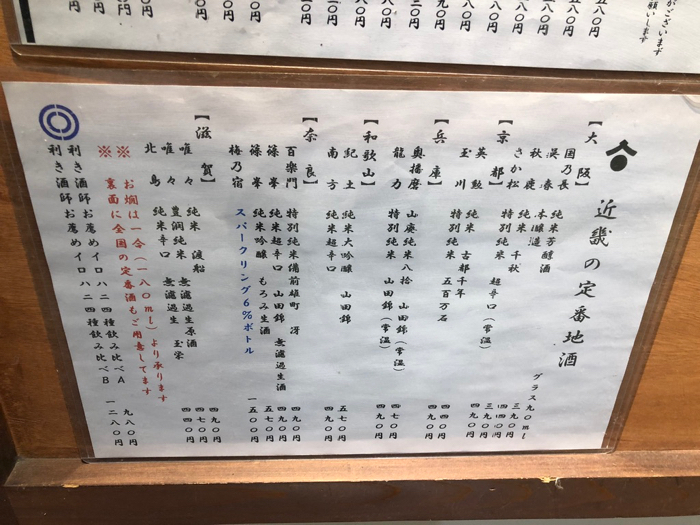 近畿の定番地酒
グラス九〇ml
【大阪】
国乃長 純米芳醇酒 三九〇円
呉春 本醸造 四四〇円
秋鹿 純米 千秋 三九〇円
さか松 特別純米 超辛口（常温） 四九〇円
【京都】
英勲 純米 古都千年 四四〇円
玉川 特別純米 五百万石 四九〇円
【兵庫】
奥播磨 山廃純米八拾 山田錦（常温） 四七〇円
龍力 特別純米 山田錦（常温） 四九〇円
【和歌山】
紀土 純米大吟醸 山田錦 五七〇円
南方 純米超辛口 四九〇円
【奈良】
百楽門 特別純米備前雄町 冴 四九〇円
篠峯 純米超辛口 山田錦 無濾過生酒 四九〇円
篠峯 純米吟醸 もろみ生酒 五七〇円
梅乃宿 スパークリング6%ボトル 一五〇〇円
【滋賀】
唯々 純米 渡船 無濾過生原酒 四九〇円
唯々 豊潤純米 無濾過生 玉栄 四七〇円
北島 純米辛口 四四〇円
※ お燗は一合（一八〇ml）より承ります
※ 裏面に全国の定番酒もご用意してます
利き酒師お薦めイロハニ四種飲み比べA 九八〇円
利き酒師お薦めイロハニ四種飲み比べB 一二八〇円